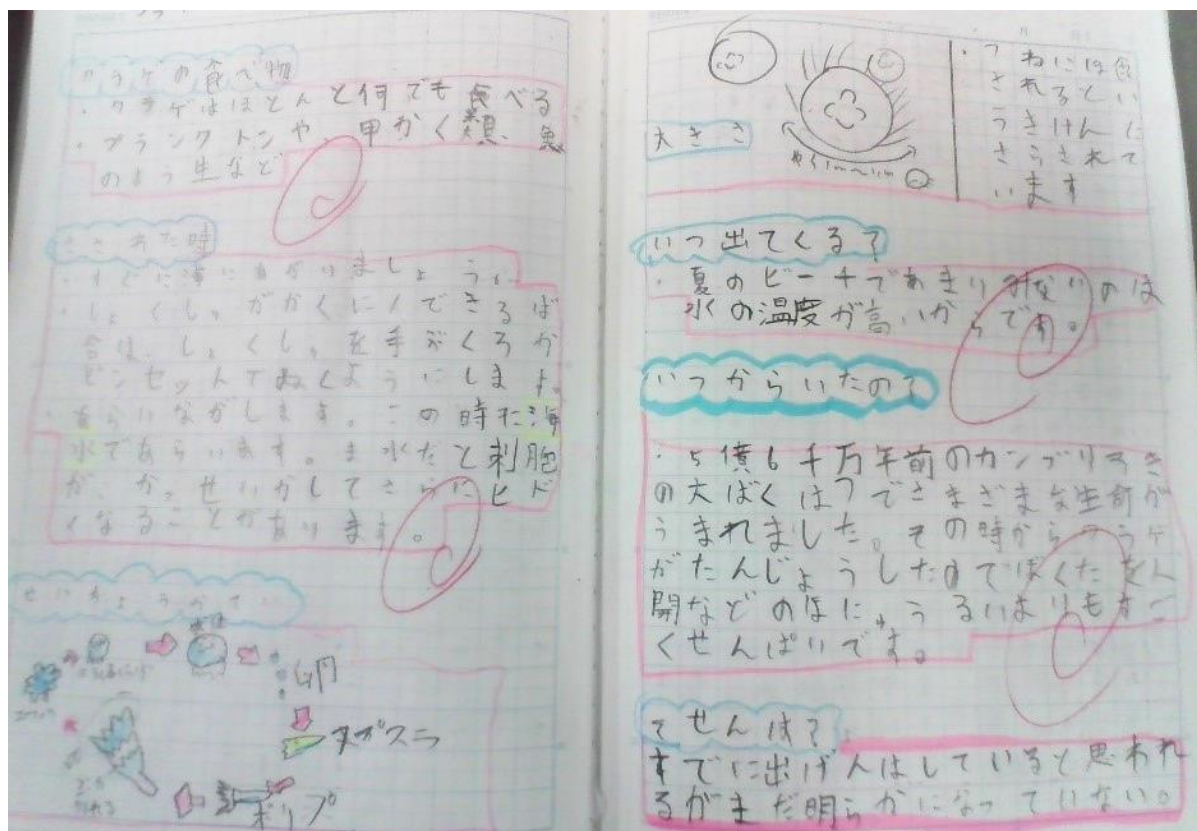 クラゲの食べ物
・クラゲはほとんと何でも食べる
・プランクトンや、甲かく類、魚
のよう生など
さされた時
・すぐに海にあがりましょう。
・しょくしゅがかくにんできるば
合は、しょくしゅを手ぶくろか
ピンセットでぬくようにします。
・あらいながします。この時だ海
水であらいます。ま水だと刺胞
が、かっせいかしてさらにヒド
くなることがあります。
せいちょうかてい
卵
ヌプラ
ポリプ
大きさ
やく1m〜
・つねには食い
されるとい
うきけんに
さらされて
います
いつ出てくる?
・夏のビーチであまりみないのは
水の温度が高いからです。
いつからいたの?
・5億6千万年前のカンブリアき
の大ばくはつでさまざまな生命が
うまれました。その時からクラゲ
がたんじょうしたのでぼくたち人
間などのほにゅうるいよりもすご
くせんぱいです。
そせんは?
すでに出げんはしていると思われ
るがまだ明らかになっていない。